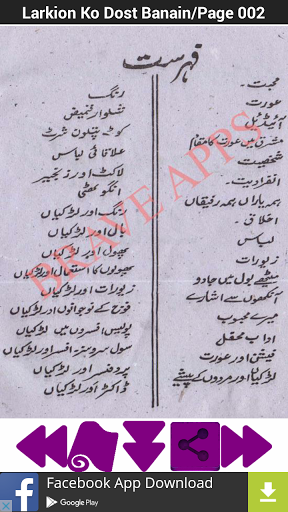 Larkion Ko Dost Banain/Page 002
فہرست
محبت۔
عورت
آئیڈیل
مشرق میں عورت کا مقام
شخصیت
انفرادیت۔
ہمہ یاراں ہمہ رفیقاں
اخلاق۔
لباس
زیورات
میٹھے بول میں جادو
آنکھوں سے اشارے
میرے محبوب
آداب محفل
فیشن اور عورت
لڑکیاں اور مردوں کے پیشے
رنگ
شلوار قمیض
کوٹ پتلون شرٹ
علاقائی لباس
لاکٹ اور زنجیر
انگوٹھی
رنگ اور لڑکیاں
بال اور لڑکیاں
پھول اور لڑکیاں
پھولوں کا استعمال اور لڑکیاں
زیورات اور لڑکیاں
فوج کے نوجوان اور لڑکیاں
پولیس افسروں میں لڑکیاں
سول سروسز آفیسر اور لڑکیاں
پروفیسر اور لڑکیاں
ڈاکٹر اور لڑکیاں
BRAVE APPS
Facebook App Download
Google Play